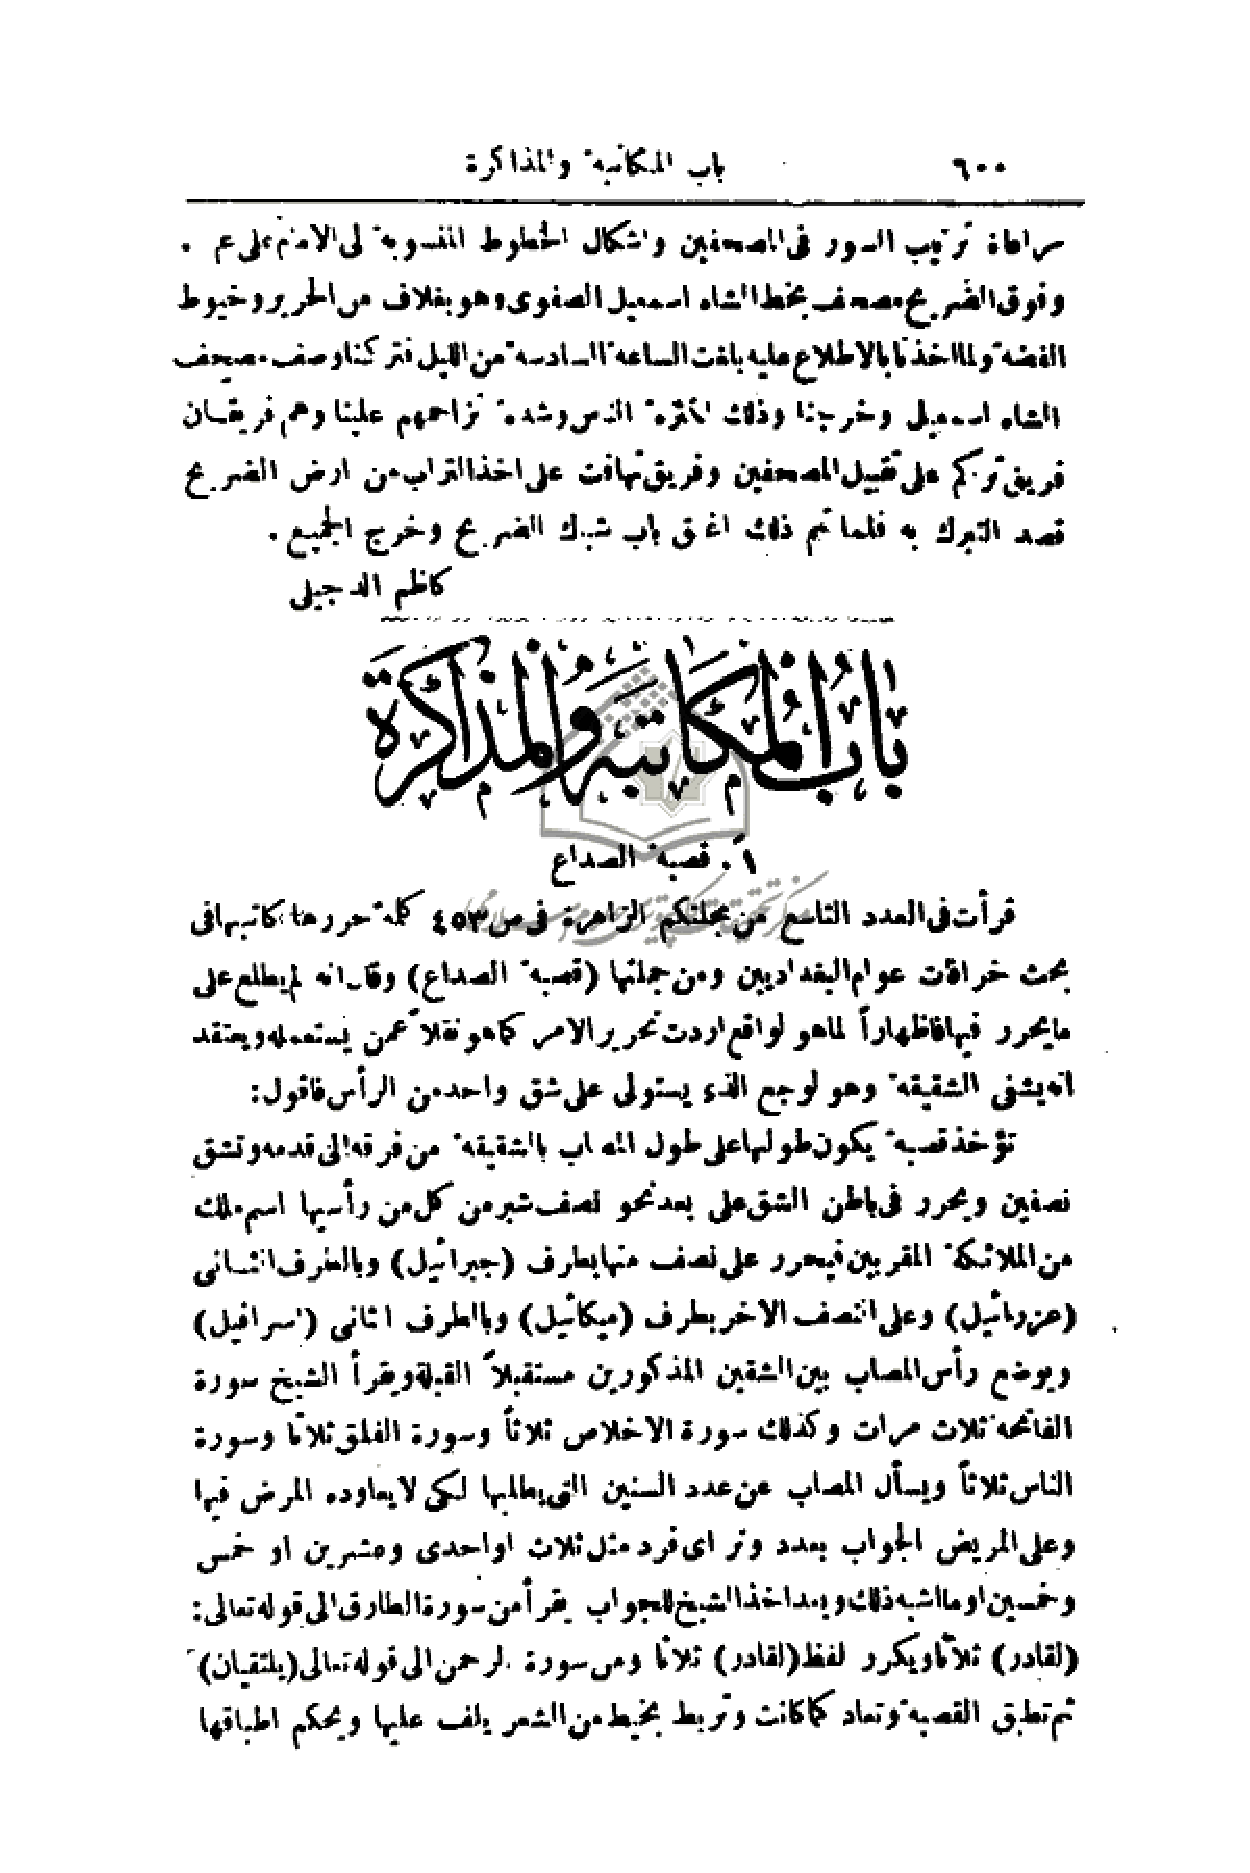 ٦٠٠ باب المكاتبة والمذاكرة
مراعاة ترتيب السور فى المصحفين واشكال الخطوط المنسوبة لى الامام على عم .
وفوق الضريح مصحف بخط الشاه اسمعيل الصفوى وهو بغلاف من الحرير وخيوط
الفضة ولما اخذنا بالاطلاع عليه بلغت الساعة السادسة من الليل فتركنا وصف مصحف
الشاه اسمعيل وخرجنا وذلك لكثرة الناس وشدة تزاحمهم علينا وهم فريقان
فريق تركم على تقبيل المصحفين وفريق تهافت على اخذ التراب من ارض الضريح
قصد التبرك به فلما تم ذلك اغلق باب شباك الضريح وخرج الجميع .
كاظم الدجيلى
باب المكاتبة والمذاكرة
١ً. قصبة الصداع
قرأت فى العدد التاسع من مجلتكم الزاهرة فى ص ٤٥٣ كلمة حررها كاتبها فى
بحث خرافات عوام البغداديين ومن جملتها (قصبة الصداع) وقال انه لم يطلع على
ما يحرر فيها فاظهاراً لما هو لواقع اردت تحرير الامر كما هو نقلاً عمن يستعمله ويعتقد
انه يشفى الشقيقة وهو لوجع الذى يستولى على شق واحد من الرأس فاقول:
تؤخذ قصبة يكون طولها على طول المصاب بالشقيقة من فرقه الى قدمه وتشق
نصفين ويحرر فى باطن الشق على بعد نحو نصف شبر من كل من رأسيها اسم ملك
من الملائكة المقربين فيحرر على نصف منها بطرف (جبرائيل) وبالطرف الثانى
(عزرائيل) وعلى النصف الاخر بطرف (ميكائيل) وبالطرف الثانى (اسرافيل)
ويوضع رأس المصاب بين الشقين المذكورين مستقبلاً القبلة ويقرأ الشيخ سورة
الفاتحة ثلاث مرات وكذلك سورة الاخلاص ثلاثاً وسورة الفلق ثلاثا وسورة
الناس ثلاثاً ويسأل المصاب عن عدد السنين التى يطلبها لكى لا يعاوده المرض فيها
وعلى المريض الجواب بعدد وتر اى فرد مثل ثلاث او احدى وعشرين او خمس
وخمسين او ما اشبه ذلك وبعد اخذ الشيخ للجواب يقرأ من سورة الطارق الى قوله تعالى:
(لقادر) ثلاثا ويكرر لفظ (لقادر) ثلاثا ومن سورة الرحمن الى قوله تعالى (يلتقيان)
ثم تطبق القصبة وتعاد كما كانت وتربط بخيط من الشعر يلف عليها ويحكم اطباقها